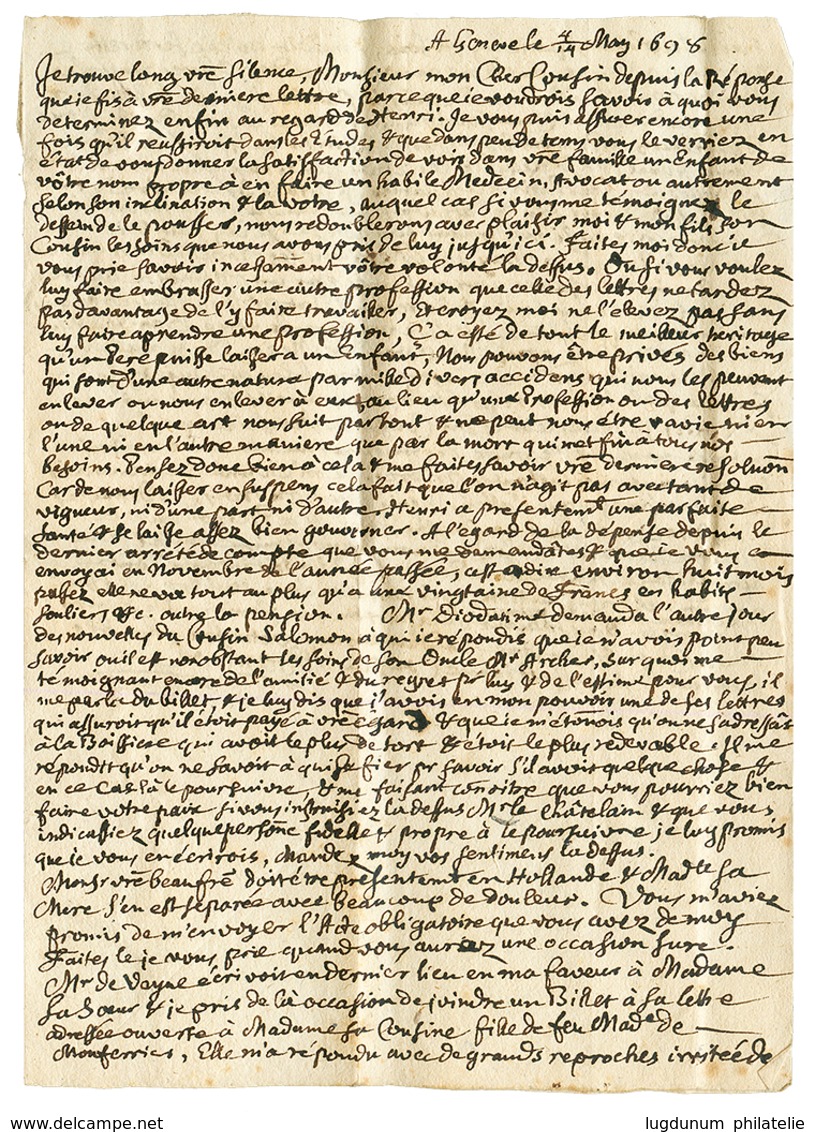 A Geneve le 4/14 May 1698
Je trouve long vre silence, Monsieur mon Cher Cousin depuis la Réponse
que je fis à vre derniere lettre, parce que je voudrois savoir à quoi vous
determinez enfin au regard de Henri. Je vous puis assurer encore une
fois qu'il reussiroit dans les Etudes & que dans peu de tems vous le verriez en
état de vous donner la satisfaction de voir dans vre famille un Enfant de
vôtre nom propre à en faire un habile Medecin, Avocat ou autrement
selon son inclination & la votre, auquel cas si vous me témoignez le
dessein de le pousser, nous redoublerons avec plaisir moi & mon fils son
Cousin les soins que nous avons pris de luy jusqu'ici. Faites moi donc je
vous prie savoir incessamment vôtre volonté là dessus. Ou si vous voulez
luy faire embrasser une autre profession que celle des lettres ne tardez
pas davantage de l'y faire travailler, & croyez moi ne l'elevez pas sans
luy faire aprendre une profession, Ç'a esté de tout le meilleur heritage
qu'un Pere puisse laisser a un Enfant, Nous pouvons être privés des biens
qui sont d'une autre nature par mille divers accidens qui nous les peuvent
enlever ou nous enlever à eux, au lieu qu'une Profession ou des lettres
ou de quelque art nous suit par tout & ne peut nous être ravie ni en
l'une ni en l'autre maniere que par la mort qui met fin a tous nos
besoins. Pensez donc bien à cela & me faites savoir vre derniere resoluon
Car de nous laisser en suspens cela fait que l'on n'agit pas avec tant de
vigueur, ni d'une part ni d'autre. Henri a presentemt une parfaite
santé & se laisse assez bien gouverner. A l'egard de la dépense depuis le
dernier arrété de compte que vous me demandâtes & que je vous
envoyai en Novembre de l'année passée, c'est à dire environ huit mois
passez elle ne va tout au plus qu'a une vingtaine de Francs en habits
souliers &c. outre la pension. Mr Diodati me demanda l'autre jour
des nouvelles du Cousin Salomon à qui je répondis que je n'avois point peu
savoir ou il est nonobstant les soins de son Oncle Mr Archer, sur quoi me
témoignant encore de l'amitié & du regret pr luy & de l'estime pour vous, il
me parla du billet, & je luy dis que j'avois en mon pouvoir une de ses lettres
qui assuroit qu'il étoit payé à vre égard & que je m'étonois qu'on ne s'adressât
à la Boissiere qui avoit le plus de tort & étoit le plus redevable. Il me
repondit qu'on ne savoit à qui se fier pr savoir s'il avoit quelque chose &
en ce cas là le poursuivre, & me faisant conoitre que vous pourriez bien
faire votre paix si vous instruisiez la dessus Mr le Châtelain & que vous
indicassiez quelque personne fidelle & propre à le poursuivre je luy promis
que je vous en écrirois, Mandez moy vos sentimens la dessus.
Monsr vre beaufre doit être presentemt en Hollande & Madlle sa
Mere s'en est séparée avec beaucoup de douleur. Vous m'aviez
promis de m'envoyer l'Acte obligatoire que vous avez de moy
Faites le je vous prie quand vous aurez une occasion sure.
Mr de Vayne écrivoit en dernier lieu en ma faveur à Madame
sa Sœur & je pris de là occasion de joindre un Billet à sa lettre
adressée ouverte à Madame sa Cousine fille de feu Made de
Monferries, Elle m'a répondu avec de grands reproches irritée de
www.delcampe.net
lugdunum philatelie